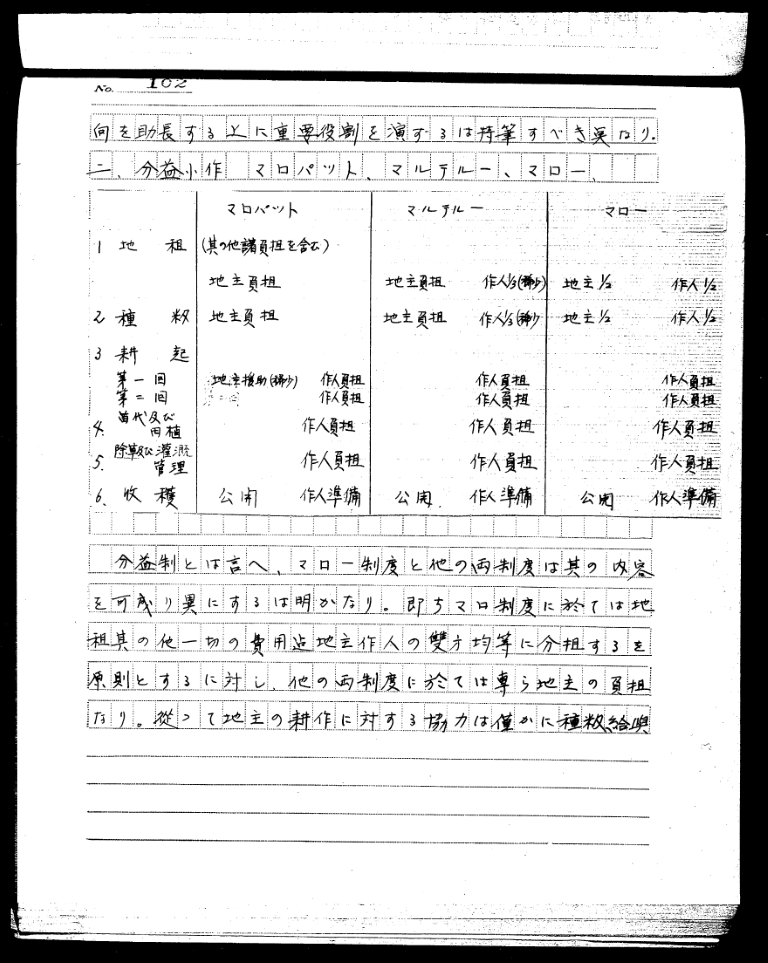 No. 162
向を助長する上に重要役割を演ずるは特筆すべき点なり.
二、分益小作 マロパット、マルテルー、マロー、
マロパット マルテルー マロー
1 地租 (其の他諸負担を含む)
地主負担 地主負担 作人1/3(稀少) 地主1/2 作人1/2
2 種籾 地主負担 地主負担 作人1/3(稀少) 地主1/2 作人1/2
3 耕起
第一回 地主援助(稀少) 作人負担 作人負担 作人負担
第二回 作人負担 作人負担 作人負担
4. 苗代及び田植 作人負担 作人負担 作人負担
5. 除草及び灌漑管理 作人負担 作人負担 作人負担
6. 收穫 公開 作人準備 公開 作人準備 公開 作人準備
分益制とは言へ、マロー制度と他の両制度は其の内容
を可成り異にするは明かなり。即ちマロ制度に於ては地
租其の他一切の費用は地主作人の雙方均等に分担するを
原則とするに対し、他の両制度に於ては専ら地主の負担
なり。從つて地主の耕作に対する協力は僅かに種籾給与